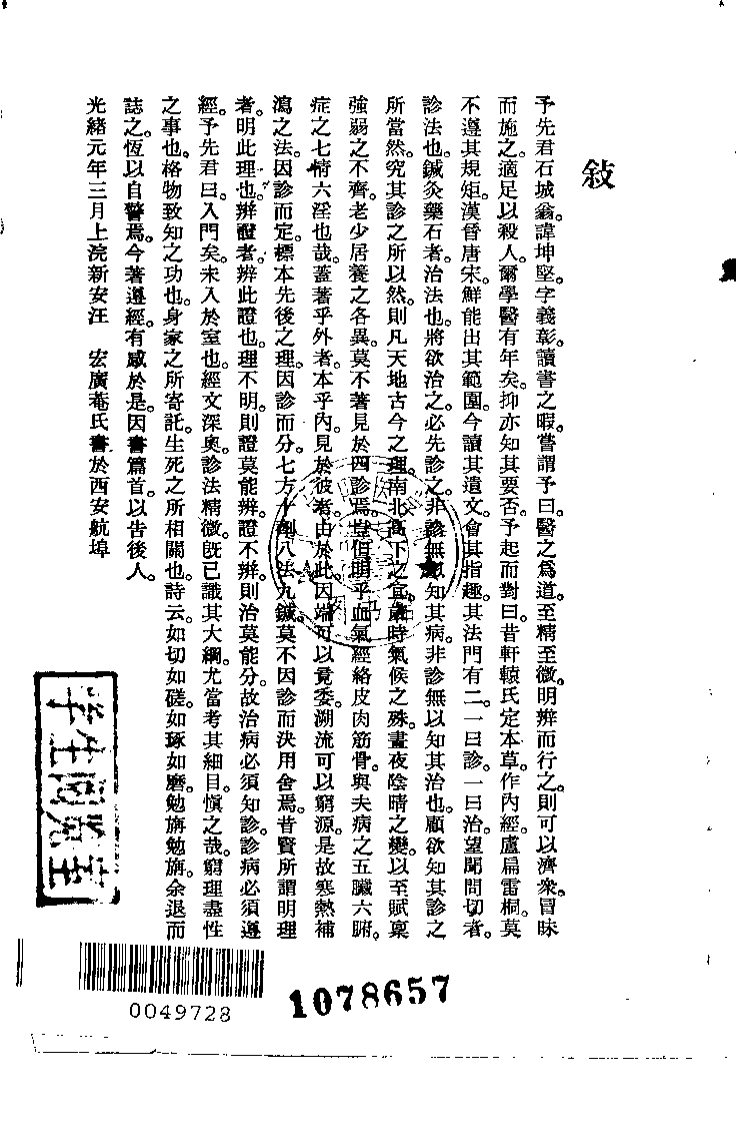 敍
予先君石城翁。諱坤堅。字義彰。讀書之暇。嘗謂予曰。醫之爲道。至精至微。明辨而行之。則可以濟衆。冒昧
而施之。適足以殺人。爾學醫有年矣。抑亦知其要否。予起而對曰。昔軒轅氏定本草。作內經。盧扁雷桐。莫
不遵其規矩。漢晉唐宋。鮮能出其範圍。今讀其遺文。會其指趣。其法門有二。一曰診。一曰治。望聞問切者。
診法也。鍼灸藥石者。治法也。將欲治之。必先診之。非診無以知其病。非診無以知其治也。顧欲知其診之
所當然。究其診之所以然。則凡天地古今之理。南北高下之宜。歲時氣候之殊。晝夜陰晴之變。以至賦稟
強弱之不齊。老少居養之各異。莫不著見於四診焉。豈但明乎血氣經絡皮肉筋骨。與夫病之五臟六腑。
症之七情六淫也哉。蓋著乎外者。本乎內。見於彼者。由於此。因端可以竟委。溯流可以窮源。是故寒熱補
瀉之法。因診而定。標本先後之理。因診而分。七方十劑。八法九鍼。莫不因診而決用舍焉。昔賢所謂明理
者。明此理也。辨證者。辨此證也。理不明。則證莫能辨。證不辨。則治莫能分。故治病必須知診。診病必須遵
經。予先君曰。入門矣。未入於室也。經文深奧。診法精微。既已識其大綱。尤當考其細目。愼之哉。窮理盡性
之事也。格物致知之功也。身家之所寄託。生死之所相關也。詩云。如切如磋。如琢如磨。勉旃勉旃。余退而
誌之。恆以自警焉。今著遵經。有感於是。因書篇首。以告後人。
光緒元年三月上浣新安汪　宏廣菴氏書於西安航埠
0049728
1078657